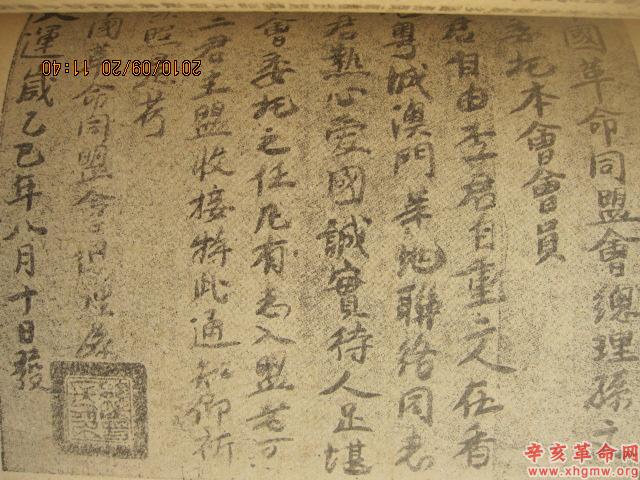 國革命同盟會總理孫文
本會會員
君自由李君自重二人在香
粵城澳門等地聯絡同志
君熱心愛國誠實待人足堪
會委託之任凡有志入盟者可
二君主盟收接特此通知仰祈
照
國革命同盟會總理孫
天運歲乙巳年八月十日發
2010/09/20 11:40
辛亥革命网
www.xhgmw.org